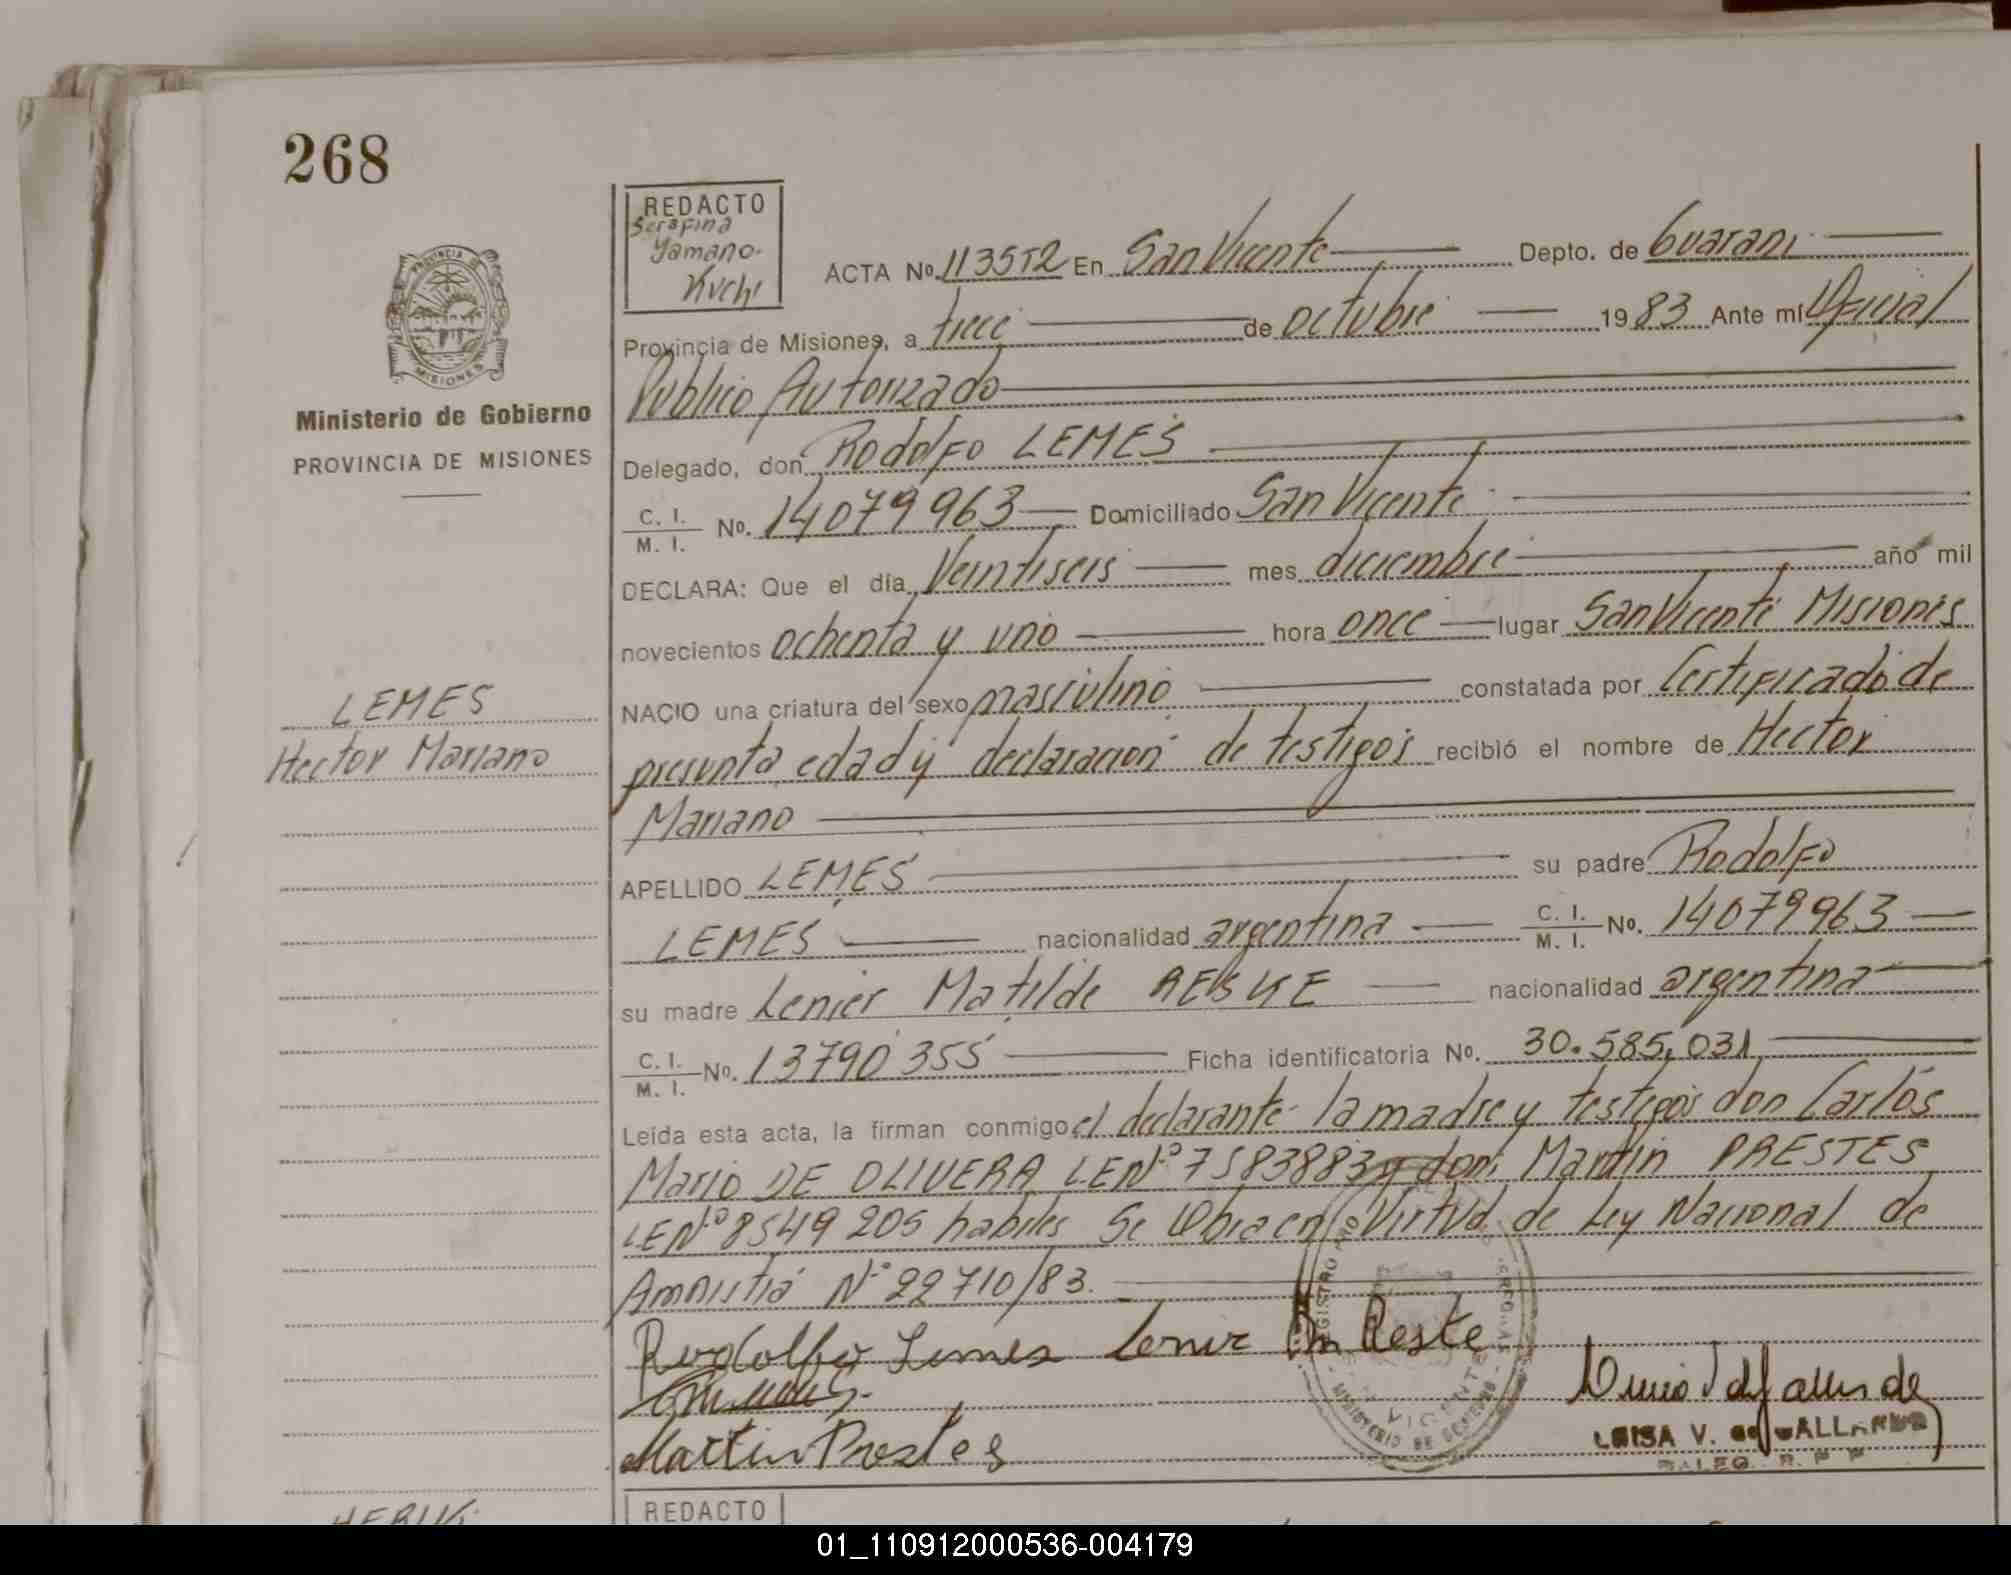 268
REDACTO
Serafina
Yamano.
Kuchi
PROVINCIA DE
MISIONES
Ministerio de Gobierno
PROVINCIA DE MISIONES
ACTA No. 113552 En San Vicente Depto. de Guarani
Provincia de Misiones, a trece de octubre 1983 Ante mí Oficial
Publico Autorizado
Delegado, don Rodolfo LEMES
C. I. / M. I. No. 14079963 Domiciliado San Vicente
DECLARA: Que el día Veintiseis mes diciembre año mil
novecientos ochenta y uno hora once lugar San Vicente Misiones
NACIO una criatura del sexo masculino constatada por Certificado de
presunta edad y declaracion de testigos recibió el nombre de Hector
Mariano
LEMES
Hector Mariano
APELLIDO LEMES su padre Rodolfo
LEMES nacionalidad argentina C. I. / M. I. No. 14079963
su madre Lenier Matilde RESKE nacionalidad argentina
C. I. / M. I. No. 13790355 Ficha identificatoria No. 30.585,031
Leída esta acta, la firman conmigo el declarante la madre y testigos don Carlos
Mario DE OLIVERA L.E Nº 7583883 y don Martin PRESTES
LE Nº 8549205 habiles Se Labra en Virtud de Ley Nacional de
Amnistia Nº 22710/83.
Rodolfo Lemes Lenir M Reste
Martin Prestes
LUISA V. de GALLARDO
VICENTE
MINISTERIO DE GOBIERNO
REDACTO
01_110912000536-004179